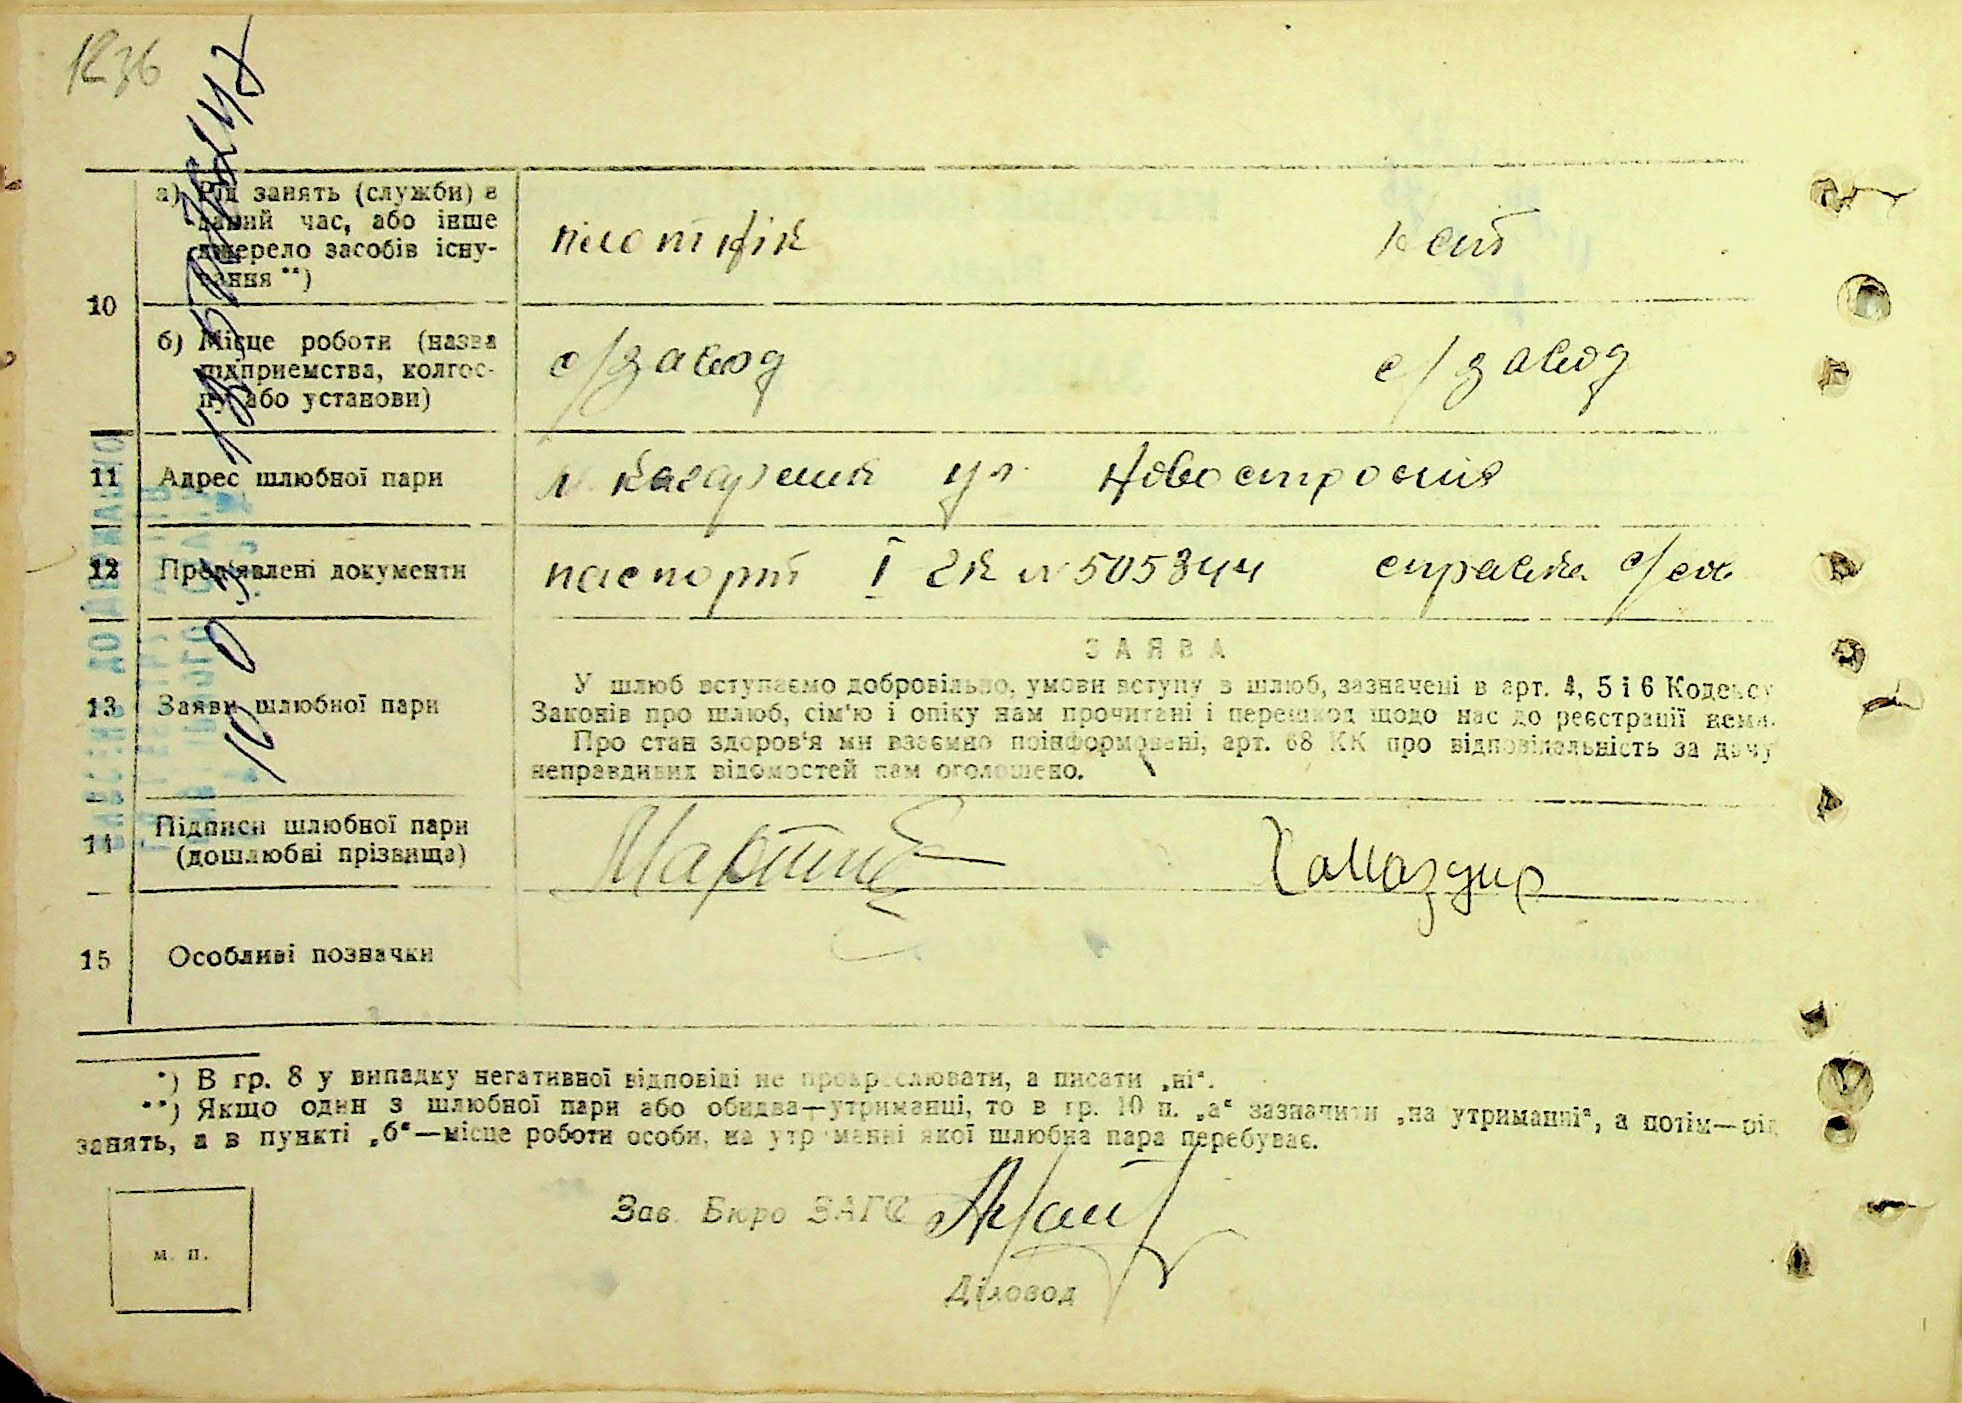 а) Рід занять (служби) в
даний час, або інше
джерело засобів існу-
вання **)
плотнік
10
б) Місце роботи (назва
підприємства, колгос-
пу або установи)
с/завод
с/завод
11 Адрес шлюбної пари
м. Кагарлик ул. Новостроенія
12 Пред'явлені документи
паспорт I ЕК № 505844 справка с/сов
З А Я В А
13 Заяви шлюбної пари
У шлюб вступаємо добровільно, умови вступу в шлюб, зазначені в арт. 4, 5 і 6 Кодексу
Законів про шлюб, сім'ю і опіку нам прочитані і перешкод щодо нас до реєстрації нема.
Про стан здоров'я ми взаємно поінформовані, арт. 68 КК про відповідальність за дачу
неправдивих відомостей нам оголошено.
14 Підписи шлюбної пари
(дошлюбні прізвища)
15 Особливі позначки
*) В гр. 8 у випадку негативної відповіді не прокреслювати, а писати „ні“.
**) Якщо один з шлюбної пари або обидва—утриманці, то в гр. 10 п. „а“ зазначити „на утриманні“, а потім—рід
занять, а в пункті „б“—місце роботи особи, на утриманні якої шлюбна пара перебуває.
Зав. Бюро ЗАГС
м. п.
Діловод